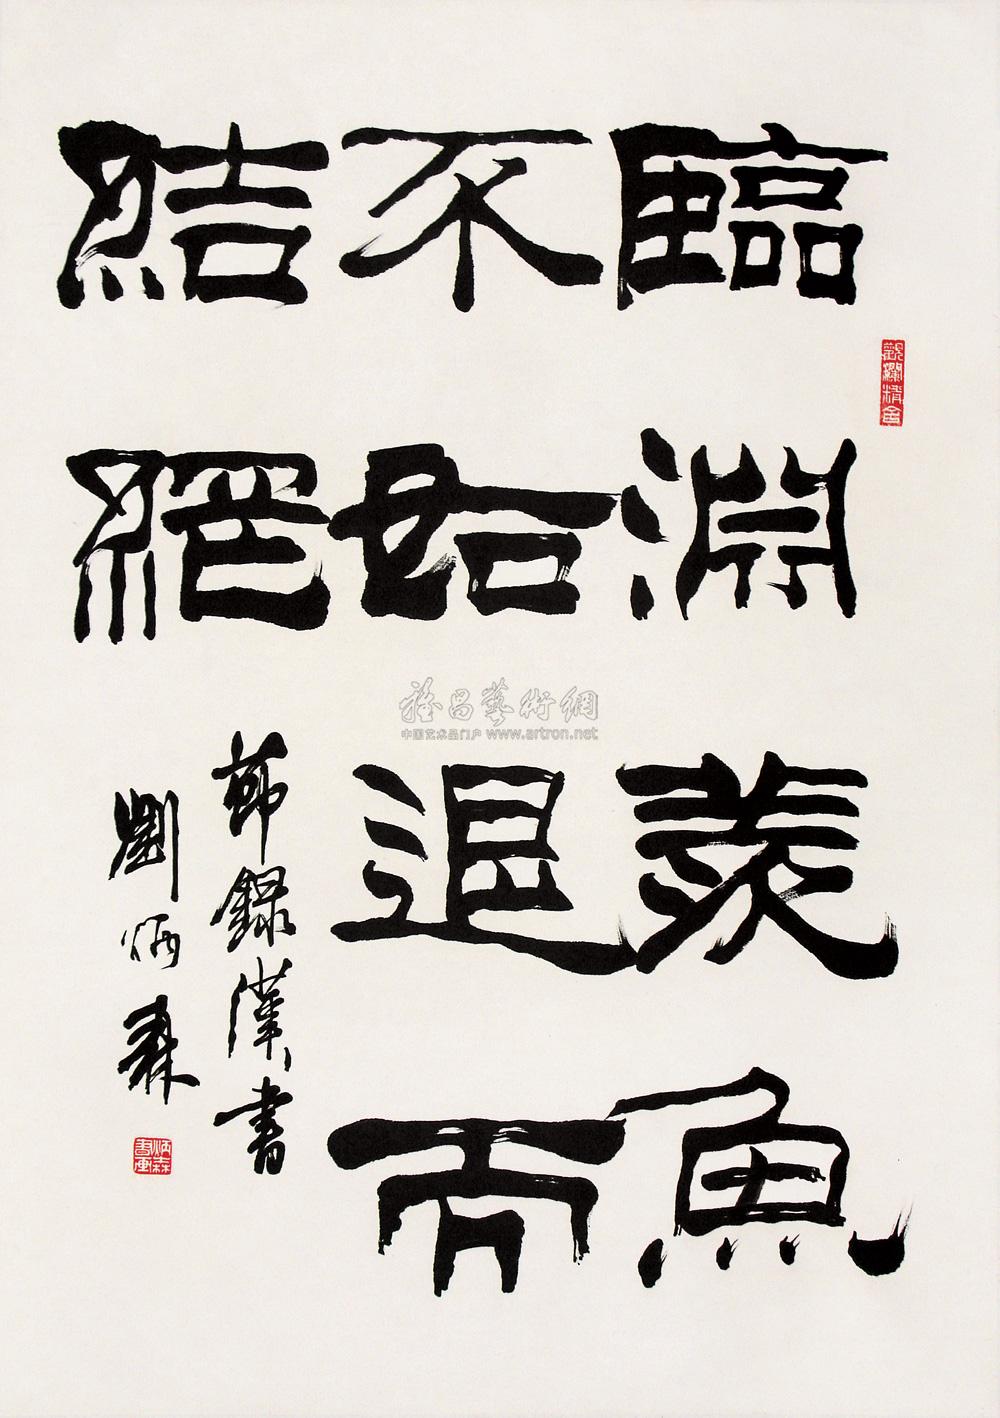 臨淵羨魚
不如退而
結網
節録漢書
劉炳森
觀瀾精舍
炳森書画
雅昌藝術網
中国艺术品门户 www.artron.net